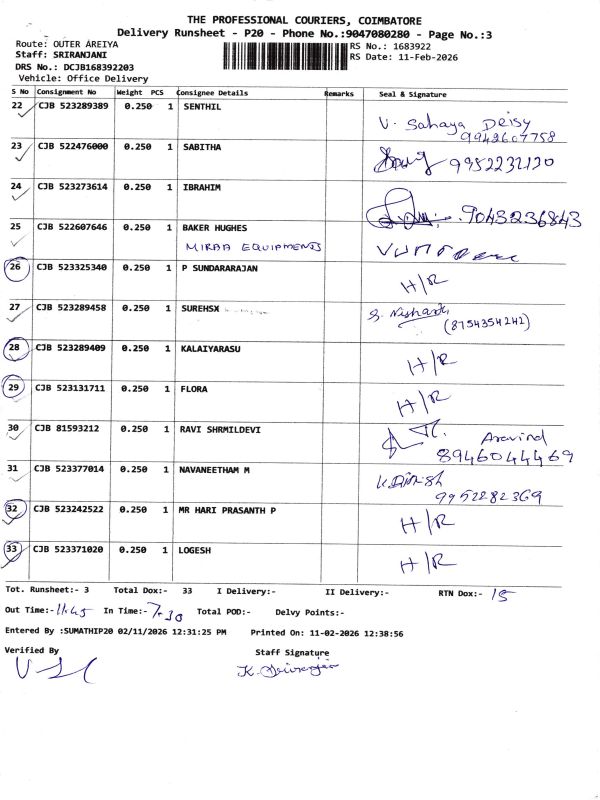 THE PROFESSIONAL COURIERS, COIMBATORE
Delivery Runsheet - P20 - Phone No.:9047080280 - Page No.:3
Route: OUTER AREIYA
RS No.: 1683922
Staff: SRIRANJANI
RS Date: 11-Feb-2026
DRS No.: DCJB168392203
Vehicle: Office Delivery
S No Consignment No Weight PCS Consignee Details Remarks Seal & Signature
22 CJB 523289389 0.250 1 SENTHIL V. Sahaya Deisy
9942607758
23 CJB 522476000 0.250 1 SABITHA 9952232120
24 CJB 523273614 0.250 1 IBRAHIM 9043236843
25 CJB 522607646 0.250 1 BAKER HUGHES
MIRAA EQUIPMENTS
26 CJB 523325340 0.250 1 P SUNDARARAJAN H/R
27 CJB 523289458 0.250 1 SUREHSX
(8754354242)
28 CJB 523289409 0.250 1 KALAIYARASU H/R
29 CJB 523131711 0.250 1 FLORA H/R
30 CJB 81593212 0.250 1 RAVI SHRMILDEVI Aravind
8946044469
31 CJB 523377014 0.250 1 NAVANEETHAM M
9952282369
32 CJB 523242522 0.250 1 MR HARI PRASANTH P H/R
33 CJB 523371020 0.250 1 LOGESH H/R
Tot. Runsheet:- 3 Total Dox:- 33 I Delivery:- II Delivery:- RTN Dox:- 15
Out Time:- 11.45 In Time:- 7.30 Total POD:- Delvy Points:-
Entered By :SUMATHIP20 02/11/2026 12:31:25 PM Printed On: 11-02-2026 12:38:56
Verified By Staff Signature